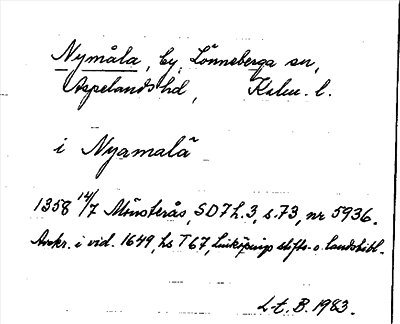 Nymåla, by, Lönneberga sn,
Aspelands hd, Kalm. l.
i Nyamalä
1358 14/7 Mönsterås, SD7 h.3, s.73, nr 5936.
Avkr. i vid. 1649, hs T 67, Linköpings stifts- o. landsbibl.
L-t. B. 1983.